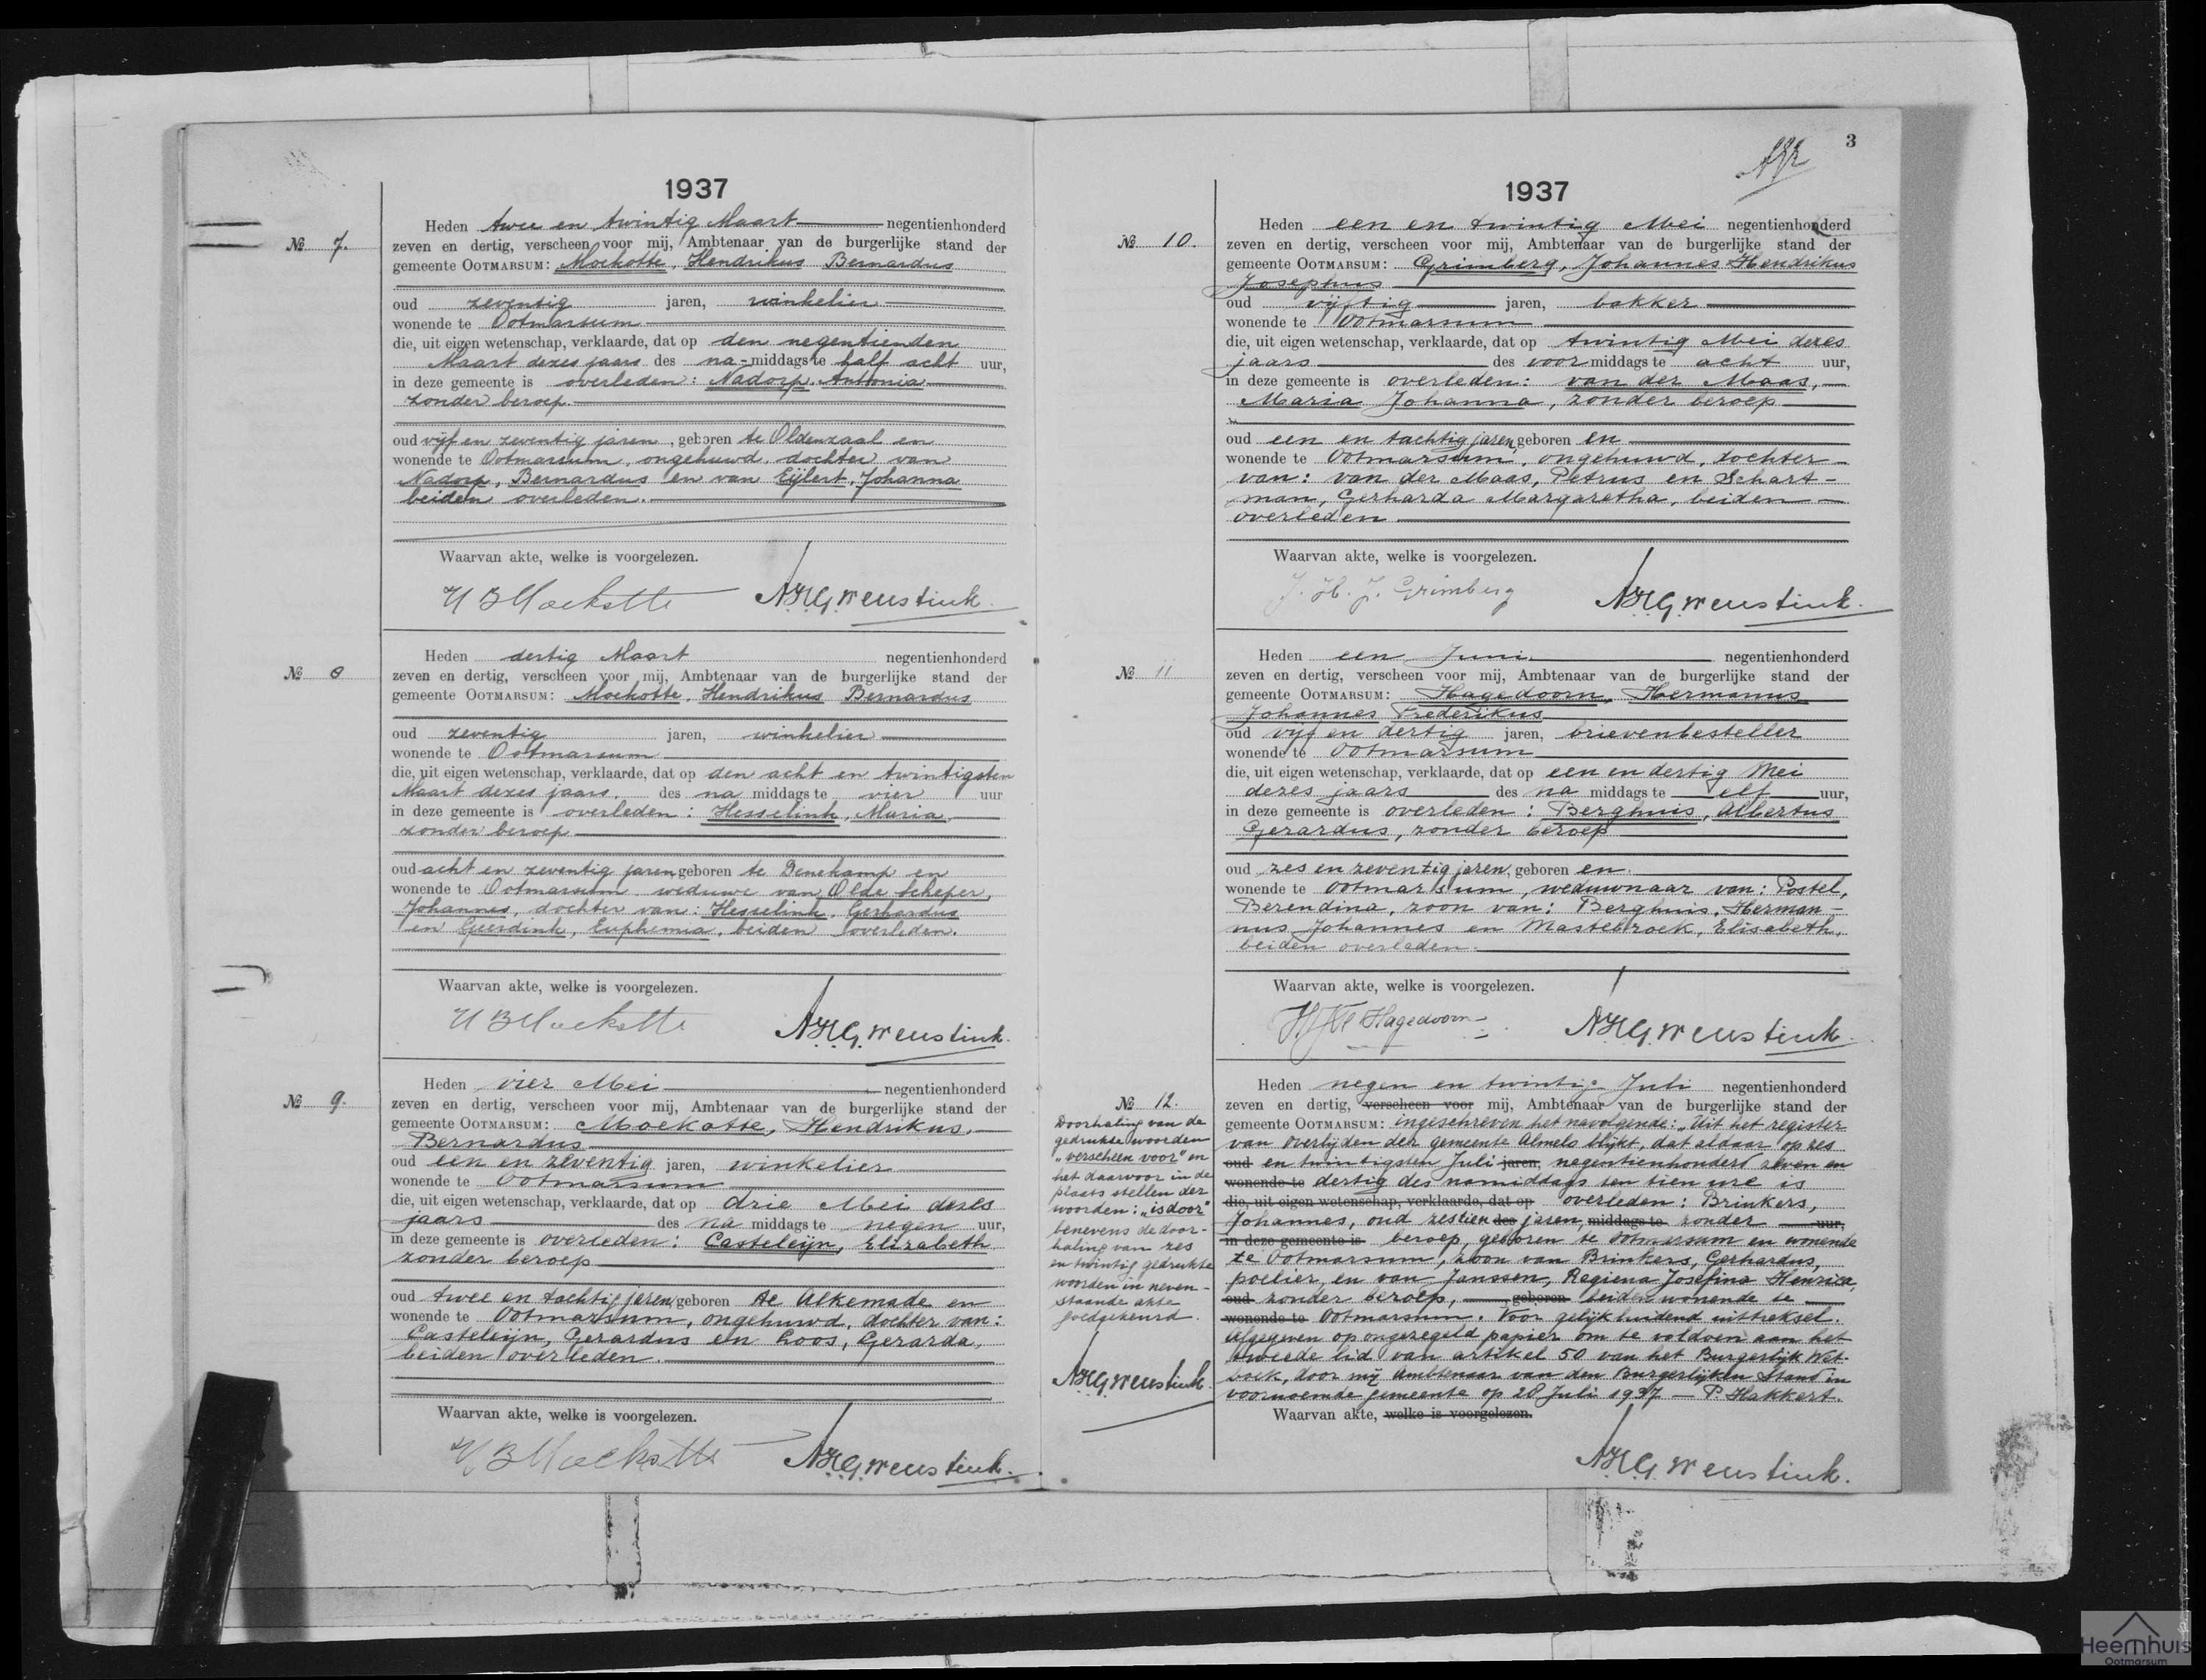 1937
Nº 7.
Heden twee en twintig Maart negentienhonderd
zeven en dertig, verscheen voor mij, Ambtenaar van de burgerlijke stand der
gemeente OOTMARSUM: Moekotte, Hendrikus Bernardus
oud zeventig jaren, winkelier
wonende te Ootmarsum
die, uit eigen wetenschap, verklaarde, dat op den negentienden
Maart dezes jaars des na-middags te half acht uur,
in deze gemeente is overleden: Nadorp, Antonia
zonder beroep.
oud vijf en zeventig jaren, geboren te Oldenzaal en
wonende te Ootmarsum, ongehuwd, dochter van
Nadorp, Bernardus en van Eijlert, Johanna
beiden overleden.
Waarvan akte, welke is voorgelezen.
H B Moekotte A.H.G. Weustink.
Nº 8
Heden dertig Maart negentienhonderd
zeven en dertig, verscheen voor mij, Ambtenaar van de burgerlijke stand der
gemeente OOTMARSUM: Moekotte, Hendrikus Bernardus
oud zeventig jaren, winkelier
wonende te Ootmarsum
die, uit eigen wetenschap, verklaarde, dat op den acht en twintigsten
Maart dezes jaars. des na middags te vier uur
in deze gemeente is overleden: Hesselink, Maria,
zonder beroep
oud acht en zeventig jaren geboren te Denekamp en
wonende te Ootmarsum weduwe van Olde Scheper,
Johannes, dochter van: Hesselink, Gerhardus
en Geerdink, Euphemia, beiden overleden.
Waarvan akte, welke is voorgelezen.
H B Moekotte A.H.G. Weustink.
Nº 9.
Heden vier Mei negentienhonderd
zeven en dertig, verscheen voor mij, Ambtenaar van de burgerlijke stand der
gemeente OOTMARSUM: Moekotte, Hendrikus,
Bernardus
oud een en zeventig jaren, winkelier
wonende te Ootmarsum
die, uit eigen wetenschap, verklaarde, dat op drie Mei dezes
jaars des na middags te negen uur,
in deze gemeente is overleden: Casteleijn, Elizabeth
zonder beroep
oud twee en tachtig jaren, geboren te Alkemade en
wonende te Ootmarsum, ongehuwd, dochter van:
Casteleijn, Gerardus en Loos, Gerarda,
beiden overleden.
Waarvan akte, welke is voorgelezen.
H B Moekotte A.H.G. Weustink.
3
1937
Nº 10.
Heden een en twintig Mei negentienhonderd
zeven en dertig, verscheen voor mij, Ambtenaar van de burgerlijke stand der
gemeente OOTMARSUM: Grimberg, Johannes Hendrikus
Josephus
oud vijftig jaren, bakker
wonende te Ootmarsum
die, uit eigen wetenschap, verklaarde, dat op twintig Mei dezes
jaars des voor middags te acht uur,
in deze gemeente is overleden: van der Maas,
Maria Johanna, zonder beroep
oud een en tachtig jaren, geboren en
wonende te Ootmarsum, ongehuwd, dochter
van: van der Maas, Petrus en Schart-
man, Gerharda Margaretha, beiden
overleden
Waarvan akte, welke is voorgelezen.
J. H. J. Grimberg A.H.G. Weustink.
Nº 11
Heden een Juni negentienhonderd
zeven en dertig, verscheen voor mij, Ambtenaar van de burgerlijke stand der
gemeente OOTMARSUM: Hagedoorn, Hermanus
Johannes Frederikus
oud vijf en dertig jaren, brievenbesteller
wonende te Ootmarsum
die, uit eigen wetenschap, verklaarde, dat op een en dertig Mei
dezes jaars des na middags te elf uur,
in deze gemeente is overleden: Berghuis, Albertus
Gerardus, zonder beroep
oud zes en zeventig jaren, geboren en
wonende te Ootmarsum, weduwnaar van: Postel,
Berendina, zoon van: Berghuis, Herman-
nus Johannes en Mastebroek, Elisabeth,
beiden overleden.
Waarvan akte, welke is voorgelezen.
Hagedoorn A.H.G. Weustink.
Nº 12.
Doorhaling van de
gedrukte woorden
"verscheen voor" en
het daarvoor in de
plaats stellen der
woorden: "is door"
benevens de door-
haling van zes
en twintig gedrukte
woorden in neven-
staande akte
goedgekeurd.
A.H.G. Weustink.
Heden negen en twintig Juli negentienhonderd
zeven en dertig, verscheen voor mij, Ambtenaar van de burgerlijke stand der
gemeente OOTMARSUM: ingeschreven het navolgende: "Uit het register
van overlijden der gemeente Almelo blijkt, dat aldaar op zes
oud en twintigsten Juli jaren, negentienhonderd zeven en
wonende te dertig des namiddags ten tien ure is
die, uit eigen wetenschap, verklaarde, dat op overleden: Brinkers,
Johannes, oud zestien des jaren, middags te zonder uur,
in deze gemeente is beroep, geboren te Ootmarsum en wonende
te Ootmarsum, zoon van Brinkers, Gerhardus,
poelier, en van Janssen, Regiena Josefina Henrica,
oud zonder beroep, geboren beiden wonende te
wonende te Ootmarsum. Voor gelijkluidend uittreksel.
Afgegeven op ongezegeld papier om te voldoen aan het
tweede lid van artikel 50 van het Burgerlijk Wet-
boek, door mij Ambtenaar van den Burgerlijken Stand in
voornoemde gemeente op 28 Juli 1937 — P. Hakkert.
Waarvan akte, welke is voorgelezen.
A.H.G. Weustink.
Heemhuis
Ootmarsum